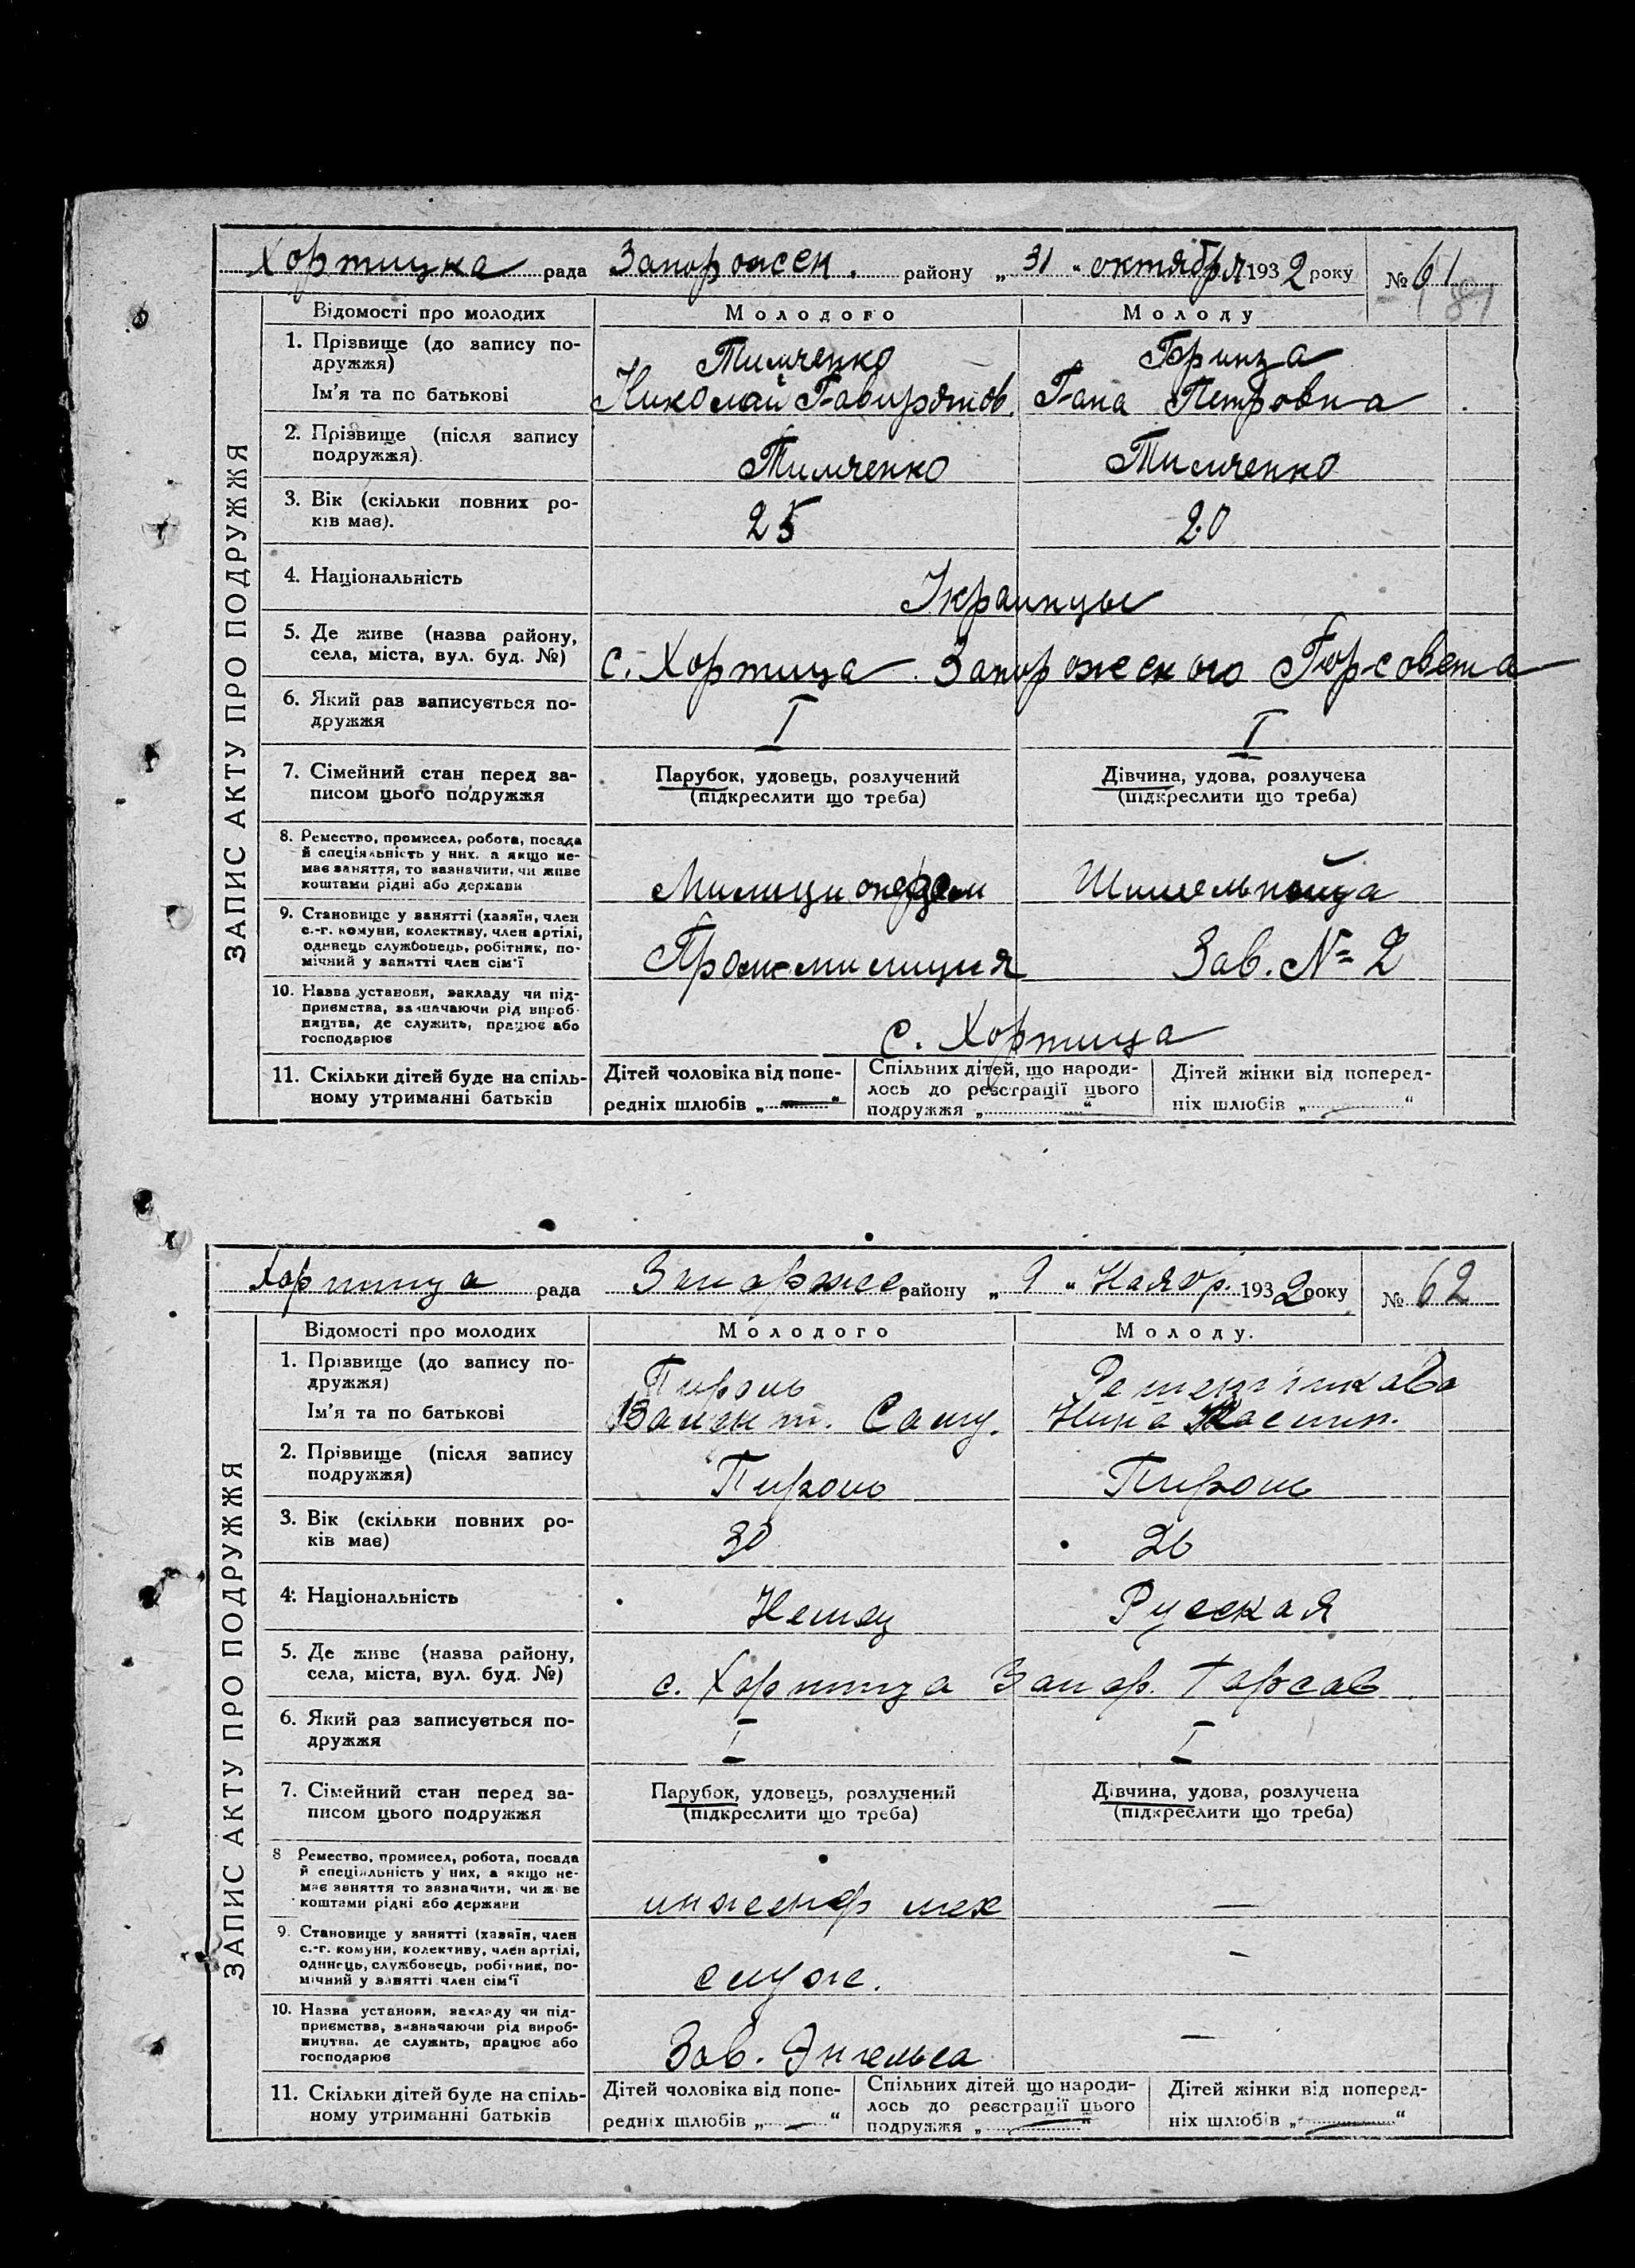 Хортицка рада Запорожск. району „31“ октября 1932 року №61
ЗАПИС АКТУ ПРО ПОДРУЖЖЯ
Відомості про молодих Молодого Молоду
1. Прізвище (до запису по- Тимченко
дружжя)
Ім'я та по батькові Николай Петровна
2. Прізвище (після запису
подружжя). Тимченко Тимченко
3. Вік (скільки повних ро- 25 20
ків має).
4. Національність Украинцы
5. Де живе (назва району,
села, міста, вул. буд. №) с. Хортица Запорожского Горсовета
6. Який раз записується по- I I
дружжя
7. Сімейний стан перед за- Парубок, удовець, розлучений Дівчина, удова, розлучена
писом цього подружжя (підкреслити що треба) (підкреслити що треба)
8. Ремество, промисел, робота, посада
й спеціяльність у них, а якщо не-
має заняття, то зазначити, чи живе
коштами рідні або держави
9. Становище у занятті (хазяїн, член
с.-г. комуни, колективу, член артілі,
одинець службовець, робітник, по- Проммилиция Зав. № 2
мічний у занятті член сім'ї
10. Назва установи, закладу чи під-
приємства, зазначаючи рід вироб-
ництва, де служить, працює або с. Хортица
господарює
11. Скільки дітей буде на спіль- Дітей чоловіка від попе- Спільних дітей, що народи- Дітей жінки від поперед-
ному утриманні батьків редніх шлюбів „—“ лось до реєстрації цього ніх шлюбів „—“
подружжя „ “
Хортица рада району „9“ Наябр. 1932 року № 62
ЗАПИС АКТУ ПРО ПОДРУЖЖЯ
Відомості про молодих Молодого Молоду.
1. Прізвище (до запису по-
дружжя)
Ім'я та по батькові Нина
2. Прізвище (після запису
подружжя)
3. Вік (скільки повних ро- 30 26
ків має)
4. Національність Немец Русская
5. Де живе (назва району,
села, міста, вул. буд. №) с. Хортица Запор. Горсов
6. Який раз записується по- I I
дружжя
7. Сімейний стан перед за- Парубок, удовець, розлучений Дівчина, удова, розлучена
писом цього подружжя (підкреслити що треба) (підкреслити що треба)
8 Ремество, промисел, робота, посада
й спеціяльність у них, а якщо не-
має заняття то зазначити, чи живе
коштами рідні або держави инженер мех —
9. Становище у занятті (хазяїн, член
с.-г. комуни, колективу, член артілі,
одинець, службовець, робітник, по- служ. —
мічний у занятті член сім'ї
10. Назва установи, закладу чи під-
приємства, зазначаючи рід вироб-
ництва, де служить, працює або Зав. Энгельса —
господарює
11. Скільки дітей буде на спіль- Дітей чоловіка від попе- Спільних дітей що народи- Дітей жінки від поперед-
ному утриманні батьків редніх шлюбів „—“ лось до реєстрації цього ніх шлюбів „—“
подружжя „—“